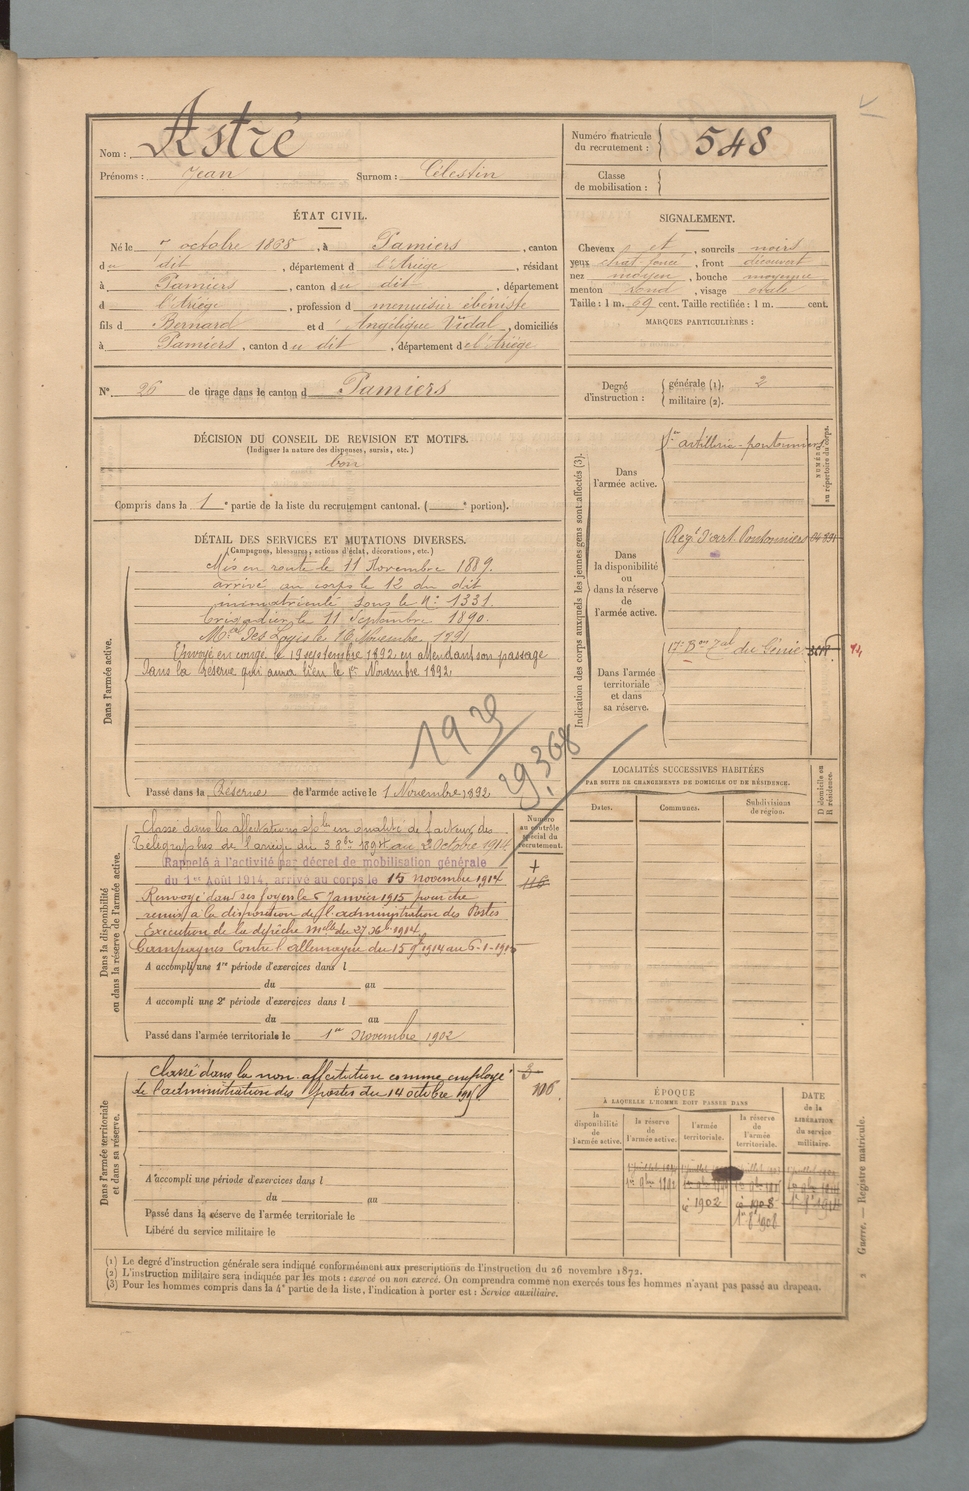 Nom : Astré
Prénoms : Jean Surnom : Célestin
Numéro matricule du recrutement : 548
Classe de mobilisation :
ÉTAT CIVIL.
Né le 7 octobre 1868, à Pamiers, canton
du dit, département d l'Ariège, résidant
à Pamiers, canton du dit, département
d l'Ariège, profession d menuisier ébéniste
fils d Bernard et d Angélique Vidal, domiciliés
à Pamiers, canton du dit, département de l'Ariège
SIGNALEMENT.
Cheveux et, sourcils noirs
yeux chat. foncé, front découvert
nez moyen, bouche moyenne
menton rond, visage ovale
Taille : 1 m. 69 cent. Taille rectifiée : 1 m. cent.
MARQUES PARTICULIÈRES :
N° 26 de tirage dans le canton d Pamiers
Degré d'instruction : générale (1). 2
militaire (2).
DÉCISION DU CONSEIL DE REVISION ET MOTIFS.
(Indiquer la nature des dispenses, sursis, etc.)
bon
Compris dans la 1e partie de la liste du recrutement cantonal. ( e portion).
DÉTAIL DES SERVICES ET MUTATIONS DIVERSES.
(Campagnes, blessures, actions d'éclat, décorations, etc.)
Dans l'armée active.
Mis en route le 11 Novembre 1889.
arrivé au corps le 12 du dit
immatriculé sous le N° 1331.
Brigadier le 11 Septembre 1890.
Mal des Logis le 16 Novembre 1891
Envoyé en congé le 19 septembre 1892 en attendant son passage
dans la Réserve qui aura lieu le 1er Novembre 1892
Passé dans la Réserve de l'armée active le 1 Novembre 1892
Indication des corps auxquels les jeunes gens sont affectés (3).
NUMÉRO au répertoire du corps.
Dans l'armée active.
1er artillerie-pontonniers
Dans la disponibilité ou dans la réserve de l'armée active.
Regt d'art. Pontonniers
Dans l'armée territoriale et dans sa réserve.
17e Bon Tal du Génie
94
LOCALITÉS SUCCESSIVES HABITÉES
PAR SUITE DE CHANGEMENTS DE DOMICILE OU DE RÉSIDENCE.
Dates.
Communes.
Subdivisions de région.
D domicile ou R résidence.
Numéro au contrôle spécial du recrutement.
Dans la disponibilité ou dans la réserve de l'armée active.
Classé dans les affectations sples en qualité de facteur des
Télégraphes de l'ariège du 3 8bre 1894 au 2 Octobre 1914
Rappelé à l'activité par décret de mobilisation générale
du 1er Août 1914, arrivé au corps le 15 novembre 1914
Renvoyé dans ses foyers le 6 Janvier 1915 pour être
remis à la disposition de l'administration des Postes
Execution de la dépêche Mlle du 27 Xbre 1914
Campagnes Contre l'allemagne du 15 9bre 1914 au 6-1-1915
A accompli une 1re période d'exercices dans l
du au
A accompli une 2e période d'exercices dans l
du au
Passé dans l'armée territoriale le 1er Novembre 1902
Dans l'armée territoriale et dans sa réserve.
Classé dans la non-affectation comme employé
de l'administration des postes du 14 octobre
A accompli une période d'exercices dans l
du au
Passé dans la réserve de l'armée territoriale le
Libéré du service militaire le
ÉPOQUE
À LAQUELLE L'HOMME DOIT PASSER DANS
la disponibilité de l'armée active.
la réserve de l'armée active.
l'armée territoriale.
la réserve de l'armée territoriale.
DATE de la LIBÉRATION du service militaire.
1902
1908
(1) Le degré d'instruction générale sera indiqué conformément aux prescriptions de l'instruction du 26 novembre 1872.
(2) L'instruction militaire sera indiquée par les mots : exercé ou non exercé. On comprendra comme non exercés tous les hommes n'ayant pas passé au drapeau.
(3) Pour les hommes compris dans la 4e partie de la liste, l'indication à porter est : Service auxiliaire.
Guerre. — Registre matricule.